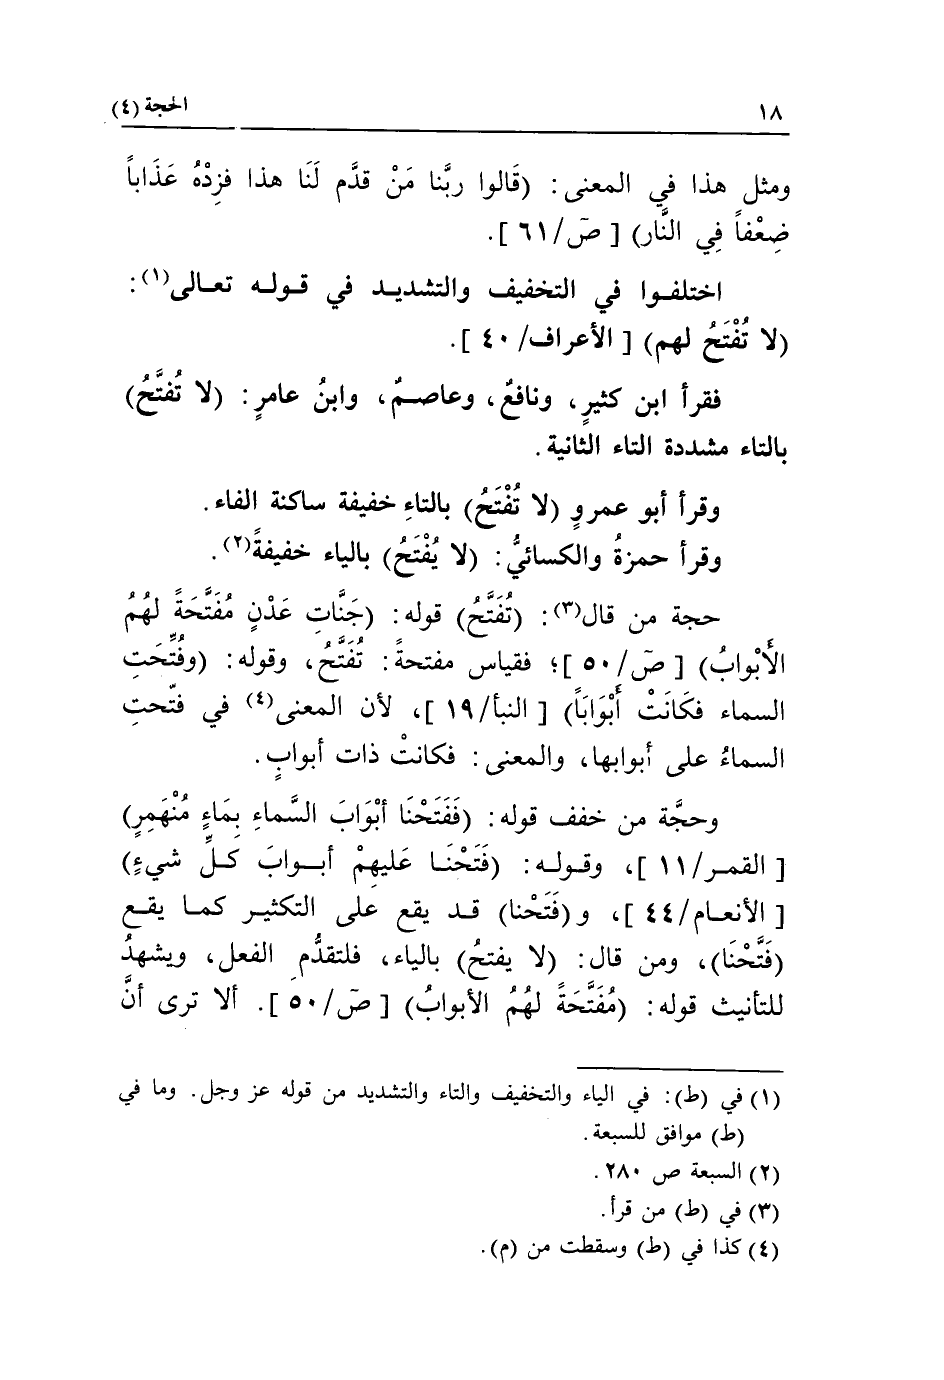 ١٨ الحجة (٤)
ومثل هذا في المعنى: (قَالوا ربَّنا مَنْ قدَّم لَنَا هذا فزِدْهُ عَذَاباً
ضِعْفاً فِي النَّار) [ صَ/٦١ ].
اختلفوا في التخفيف والتشديد في قوله تعالى(١):
(لا تُفْتَحُ لهم) [ الأعراف/٤٠ ].
فقرأ ابن كثيرٍ، ونافعٌ، وعاصمٌ، وابنُ عامرٍ: (لا تُفَتَّحُ)
بالتاء مشددة التاء الثانية.
وقرأ أبو عمروٍ (لا تُفْتَحُ) بالتاءِ خفيفة ساكنة الفاء.
وقرأ حمزةُ والكسائيُّ: (لا يُفْتَحُ) بالياء خفيفةً(٢).
حجة من قال(٣): (تُفَتَّحُ) قوله: (جَنَّاتِ عَدْنٍ مُفَتَّحَةً لهُمُ
الأَبْوابُ) [ صَ/٥٠ ]؛ فقياس مفتحةً: تُفَتَّحُ، وقوله: (وفُتِّحَتِ
السماء فكَانَتْ أَبْوَابَاً) [ النبأ/١٩ ]، لأن المعنى(٤) في فتّحتِ
السماءُ على أبوابها، والمعنى: فكانتْ ذات أبوابٍ.
وحجَّة من خفف قوله: (فَفَتَحْنَا أبْوَابَ السَّماءِ بِمَاءٍ مُنْهَمِرٍ)
[ القمر/١١ ]، وقوله: (فَتَحْنَا عَليهِمْ أبوابَ كلِّ شيءٍ)
[ الأنعام/٤٤ ]، و(فَتَحْنا) قد يقع على التكثير كما يقع
(فَتَّحْنَا)، ومن قال: (لا يفتحُ) بالياء، فلتقدُّمِ الفعل، ويشهدُ
للتأنيث قوله: (مُفَتَّحَةً لهُمُ الأبوابُ) [ صَ/٥٠ ]. ألا ترى أنَّ
(١) في (ط): في الياء والتخفيف والتاء والتشديد من قوله عز وجل. وما في
(ط) موافق للسبعة.
(٢) السبعة ص ٢٨٠.
(٣) في (ط) من قرأ.
(٤) كذا في (ط) وسقطت من (م).